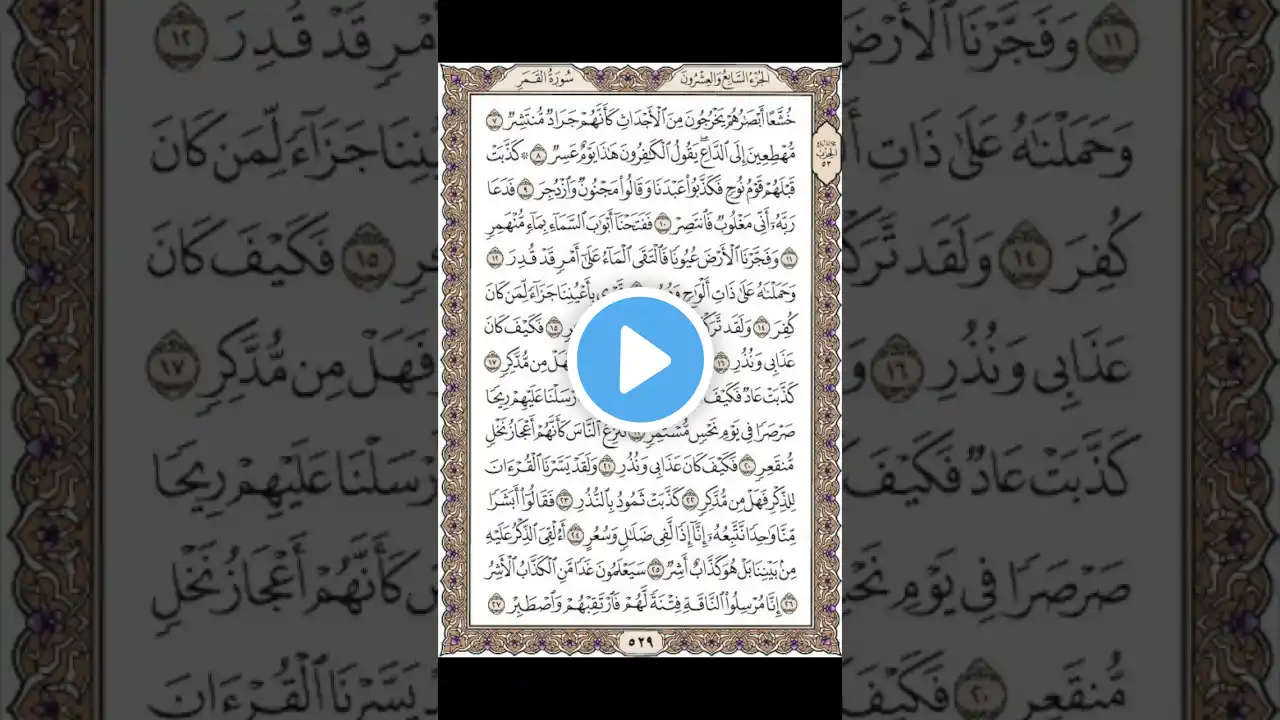 الجُزْءُ السَّابِعُ وَالعِشْرُونَ سُورَةُ القَمَرِ
خُشَّعًا أَبْصَٰرُهُمْ يَخْرُجُونَ مِنَ ٱلْأَجْدَاثِ كَأَنَّهُمْ جَرَادٌ مُّنتَشِرٌ ٧
مُّهْطِعِينَ إِلَى ٱلدَّاعِ ۖ يَقُولُ ٱلْكَٰفِرُونَ هَٰذَا يَوْمٌ عَسِرٌ ٨ ۞ كَذَّبَتْ
قَبْلَهُمْ قَوْمُ نُوحٍ فَكَذَّبُوا۟ عَبْدَنَا وَقَالُوا۟ مَجْنُونٌ وَٱزْدُجِرَ ٩ فَدَعَا
رَبَّهُۥٓ أَنِّى مَغْلُوبٌ فَٱنتَصِرْ ١٠ فَفَتَحْنَآ أَبْوَٰبَ ٱلسَّمَآءِ بِمَآءٍ مُّنْهَمِرٍ
١١ وَفَجَّرْنَا ٱلْأَرْضَ عُيُونًا فَٱلْتَقَى ٱلْمَآءُ عَلَىٰٓ أَمْرٍ قَدْ قُدِرَ ١٢
وَحَمَلْنَٰهُ عَلَىٰ ذَاتِ أَلْوَٰحٍ بِأَعْيُنِنَا جَزَآءً لِّمَن كَانَ
كُفِرَ ١٤ وَلَقَد ١٥ فَكَيْفَ كَانَ
عَذَابِى وَنُذُرِ ١٦ مِن مُّدَّكِرٍ ١٧
كَذَّبَتْ عَادٌ فَكَيْفَ عَلَيْهِمْ رِيحًا
صَرْصَرًا فِى يَوْمِ نَحْسٍ مُّسْتَمِرٍّ تَنزِعُ ٱلنَّاسَ كَأَنَّهُمْ أَعْجَازُ نَخْلٍ
مُّنقَعِرٍ ٢٠ فَكَيْفَ كَانَ عَذَابِى وَنُذُرِ ٢١ وَلَقَدْ يَسَّرْنَا ٱلْقُرْءَانَ
لِلذِّكْرِ فَهَلْ مِن مُّدَّكِرٍ ٢٢ كَذَّبَتْ ثَمُودُ بِٱلنُّذُرِ ٢٣ فَقَالُوٓا۟ أَبَشَرًا
مِّنَّا وَٰحِدًا نَّتَّبِعُهُۥٓ إِنَّآ إِذًا لَّفِى ضَلَٰلٍ وَسُعُرٍ ٢٤ أَءُلْقِىَ ٱلذِّكْرُ عَلَيْهِ
مِنۢ بَيْنِنَا بَلْ هُوَ كَذَّابٌ أَشِرٌ ٢٥ سَيَعْلَمُونَ غَدًا مَّنِ ٱلْكَذَّابُ ٱلْأَشِرُ
٢٦ إِنَّا مُرْسِلُوا۟ ٱلنَّاقَةِ فِتْنَةً لَّهُمْ فَٱرْتَقِبْهُمْ وَٱصْطَبِرْ ٢٧
٥٢٩
الحزب
٥٣